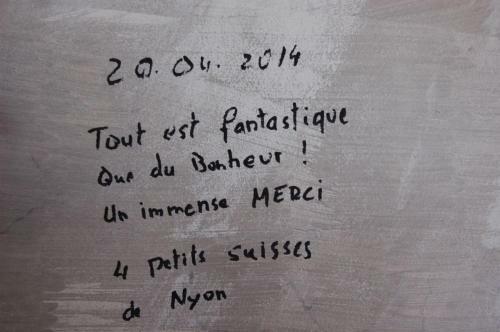 20.04.2014
Tout est fantastique
Que du Bonheur !
Un immense MERCi
4 petits suisses
de Nyon